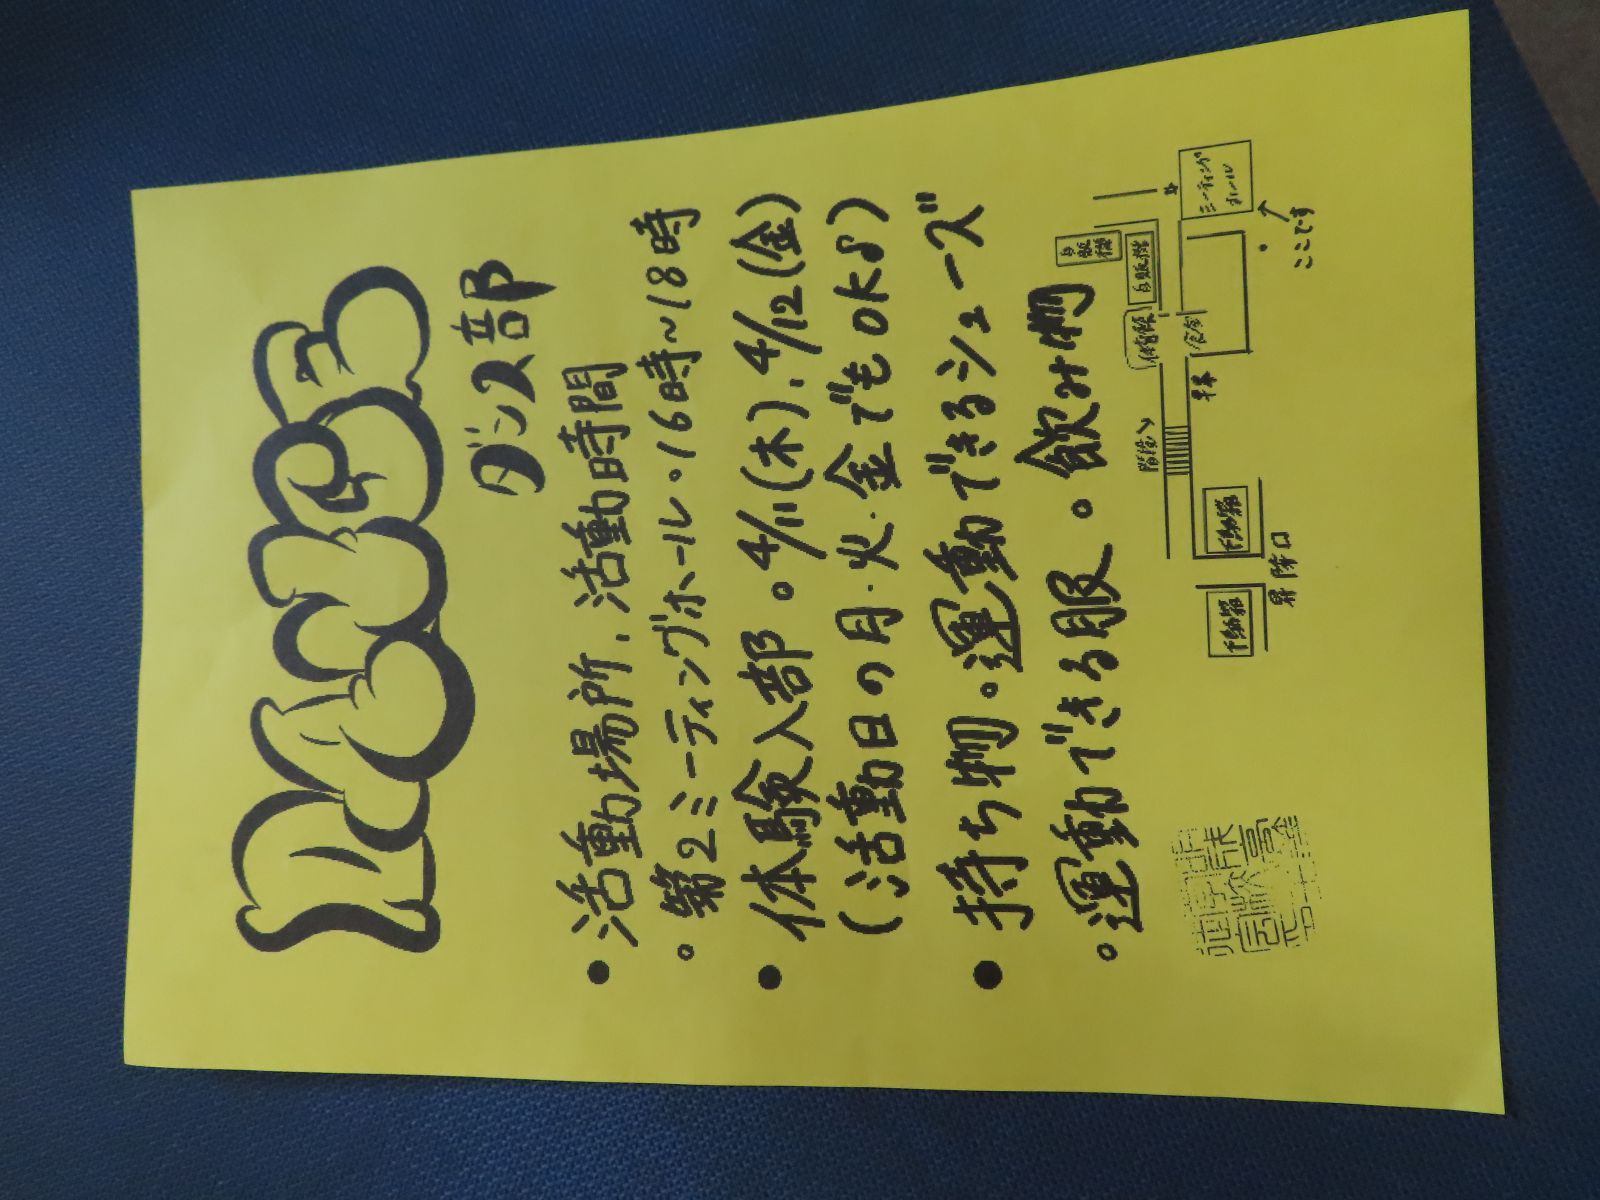 DANCE
ダンス部
● 活動場所、活動時間
。第2ミーティングホール。16時～18時
● 体験入部。4/11(木)、4/12(金)
(活動日の月・火・金でもOK♪)
● 持ち物。運動できるシューズ
。運動できる服。飲み物
自販機
自販機
ミーティングホール
体育館
食堂
ここです
階段
下駄箱
下駄箱
昇降口